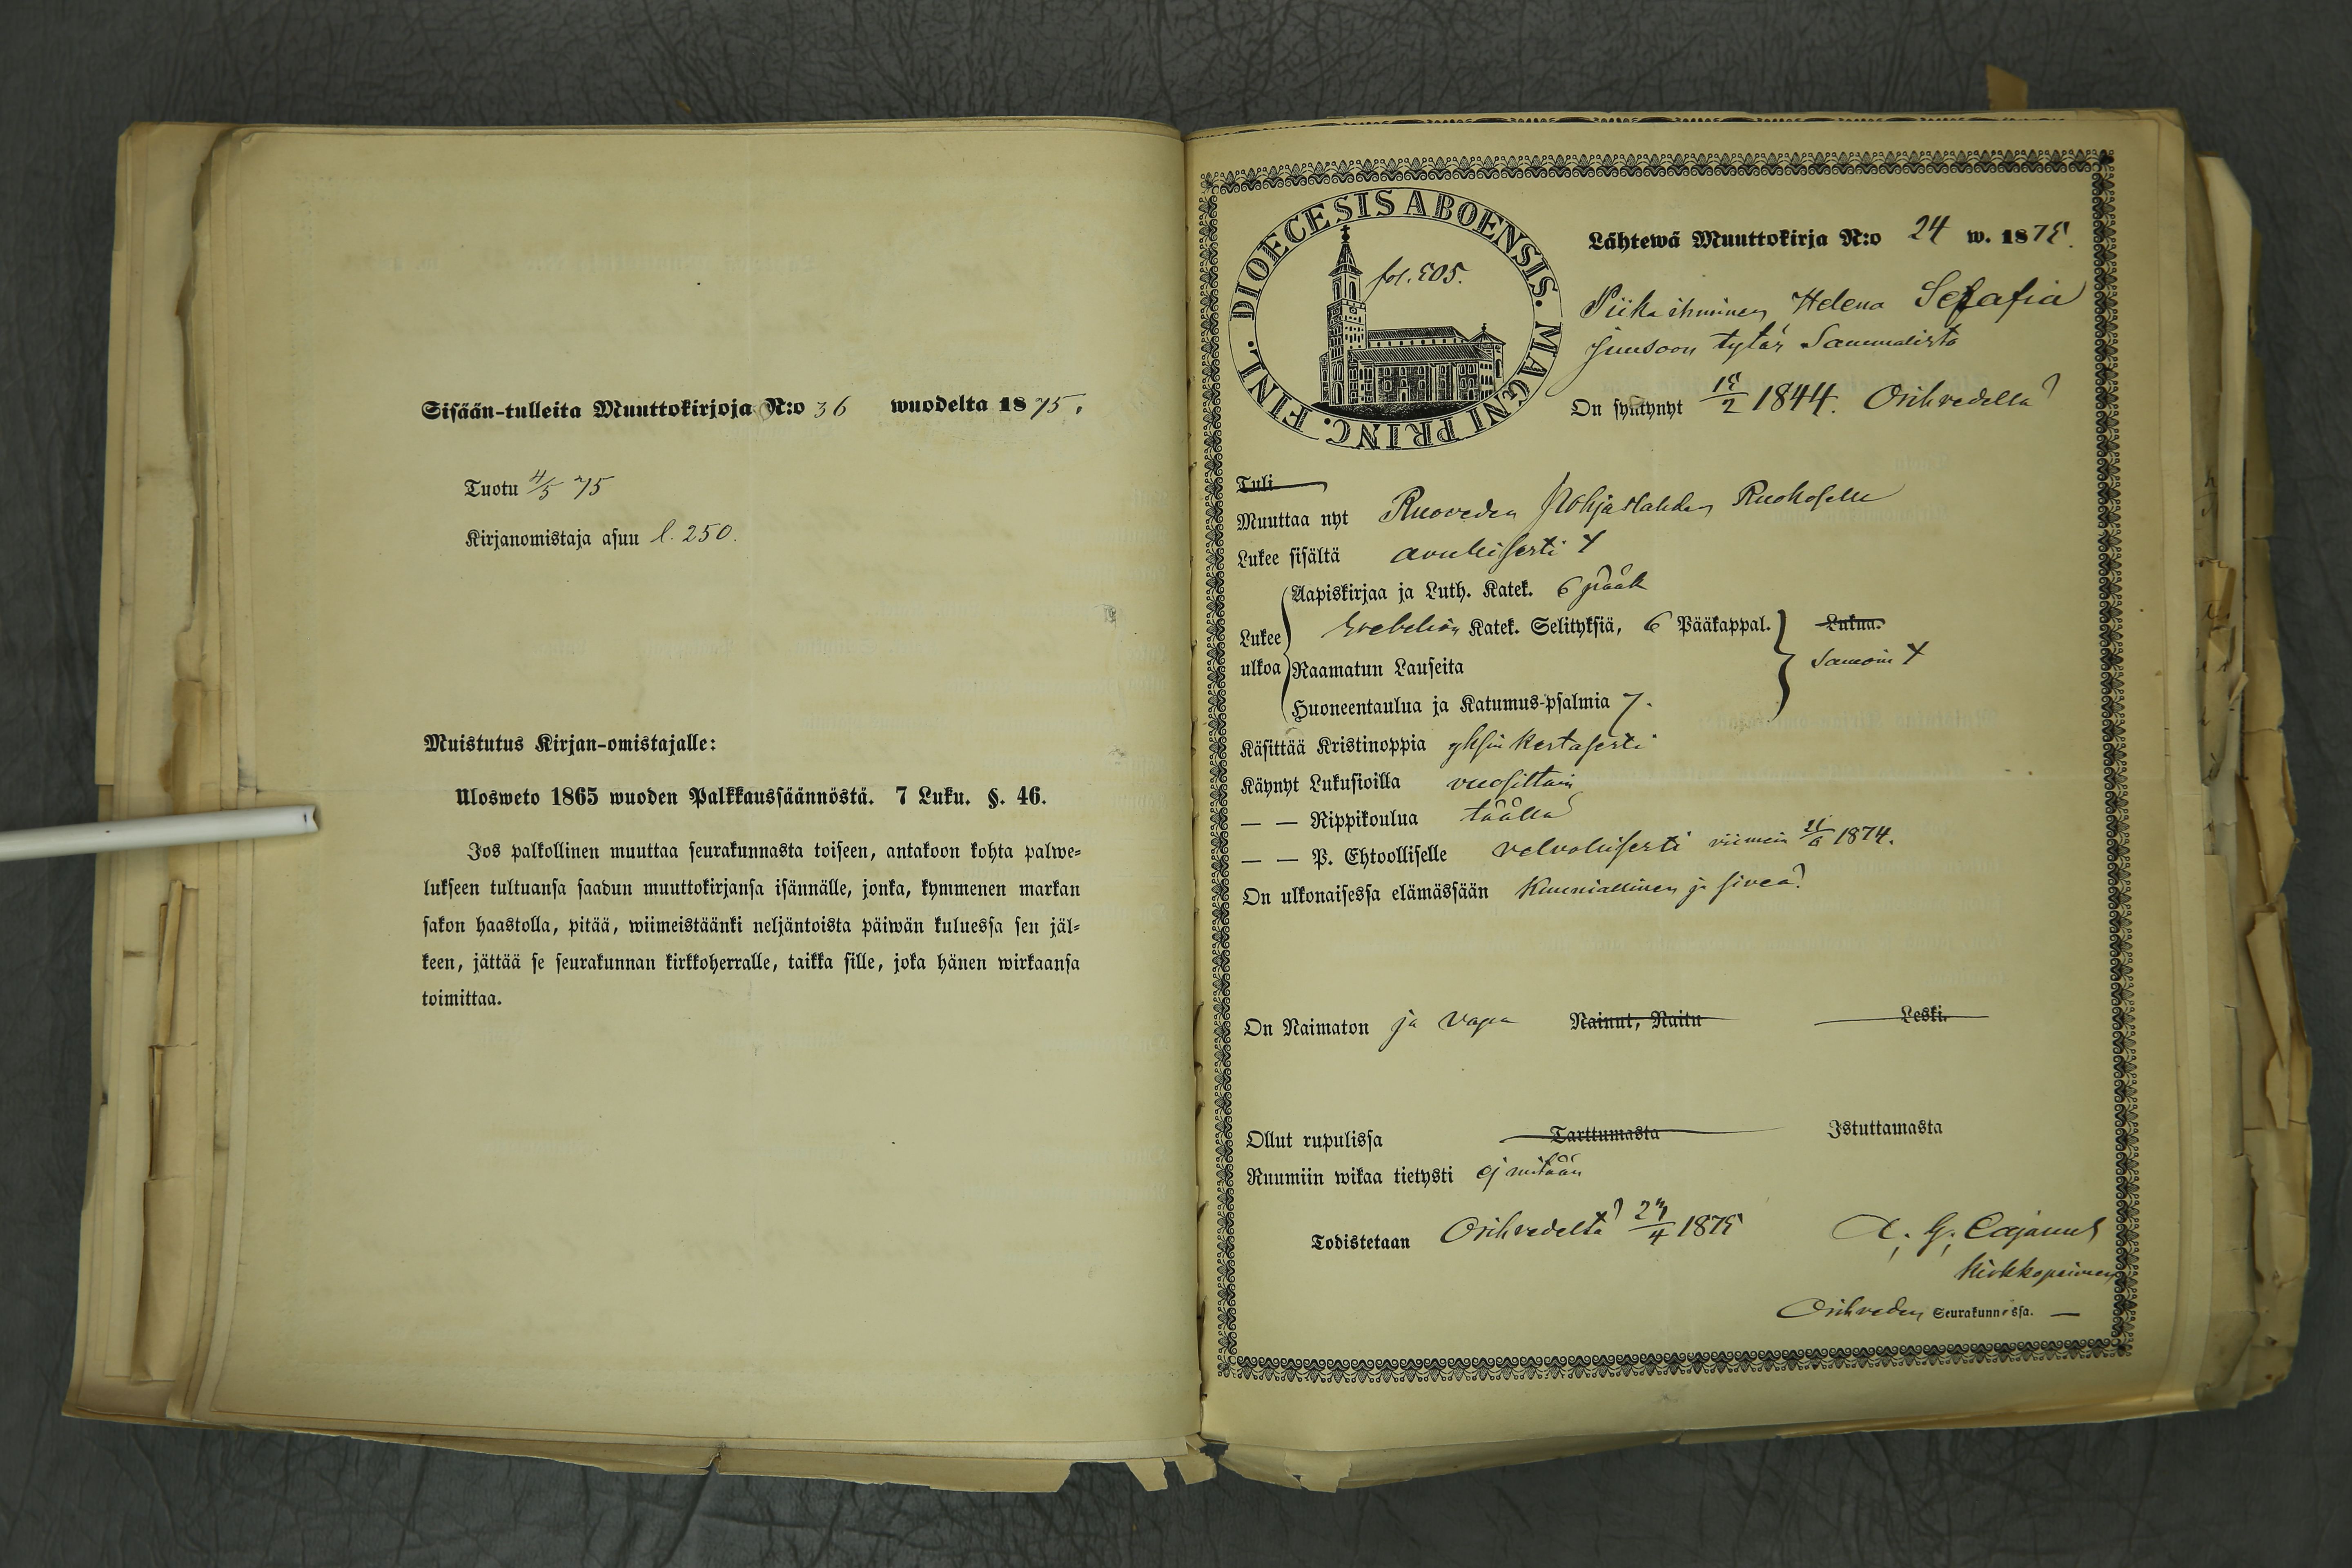 Sisään-tulleita Muuttokirjoja N:o 36 wuodelta 1875.
Tuotu 4/5 75
Kirjanomistaja asuu l. 250.
Muistutus Kirjan-omistajalle:
Ulosweto 1865 wuoden Palkkaussäännöstä. 7 Luku. §. 46.
Jos palkollinen muuttaa seurakunnasta toiseen, antakoon kohta palwe-
lukseen tultuansa saadun muuttokirjansa isännälle, jonka, kymmenen markan
sakon haastolla, pitää, wiimeistäänki neljäntoista päiwän kuluessa sen jäl-
keen, jättää se seurakunnan kirkkoherralle, taikka sille, joka hänen wirkaansa
toimittaa.
DIOECESIS ABOENSIS. MAGNI PRINC. FINL.
fol. 505.
Lähtewä Muuttokirja N:o 24 w. 1875.
Piika ihminen Helena Serafia
Juusoon tytär Sammalisto
On syntynyt 15/2 1844. Orihvedellä
Tuli
Muuttaa nyt Ruoveden Pohjaslahden Ruhoselle
Lukee sisältä avullisesti
Aapiskirjaa ja Luth. Katek. 6 pääk
Lukee ulkoa
Svebelion Katek. Selityksiä, 6 Pääkappal. Lukua.
Raamatun Lauseita samoin
Huoneentaulua ja Katumus-psalmia 7.
Käsittää Kristinoppia yksinkertasesti
Käynyt Lukusioilla vuosittain
— — Rippikoulua täällä
— — P. Ehtoolliselle velvollisesti viimein 1874.
On ulkonaisessa elämässään Kunniallinen ja siveä
On Naimaton ja vapa Nainut, Naitu Leski.
Ollut rupulissa Tarttumasta Istuttamasta
Ruumiin wikaa tietysti ej mitään
Todistetaan Orihvedeltä 27/4 1875 A. G. Cajanus
Kirkkopaimen
Orihveden Seurakunnassa. —